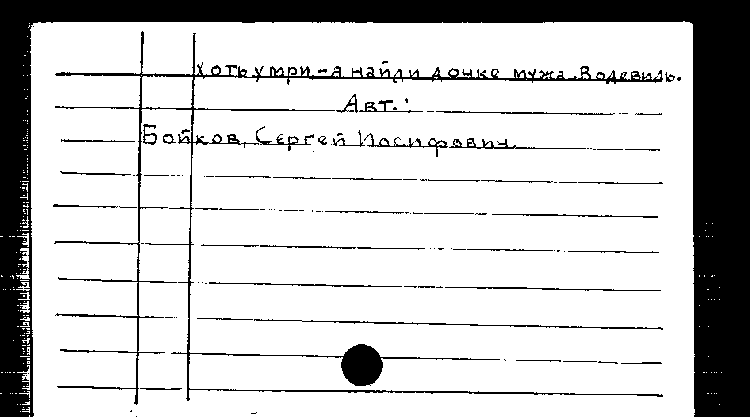 Хоть умри - а найди дочке мужа. Водевиль.
Авт.:
Бойков, Сергей Иосифович